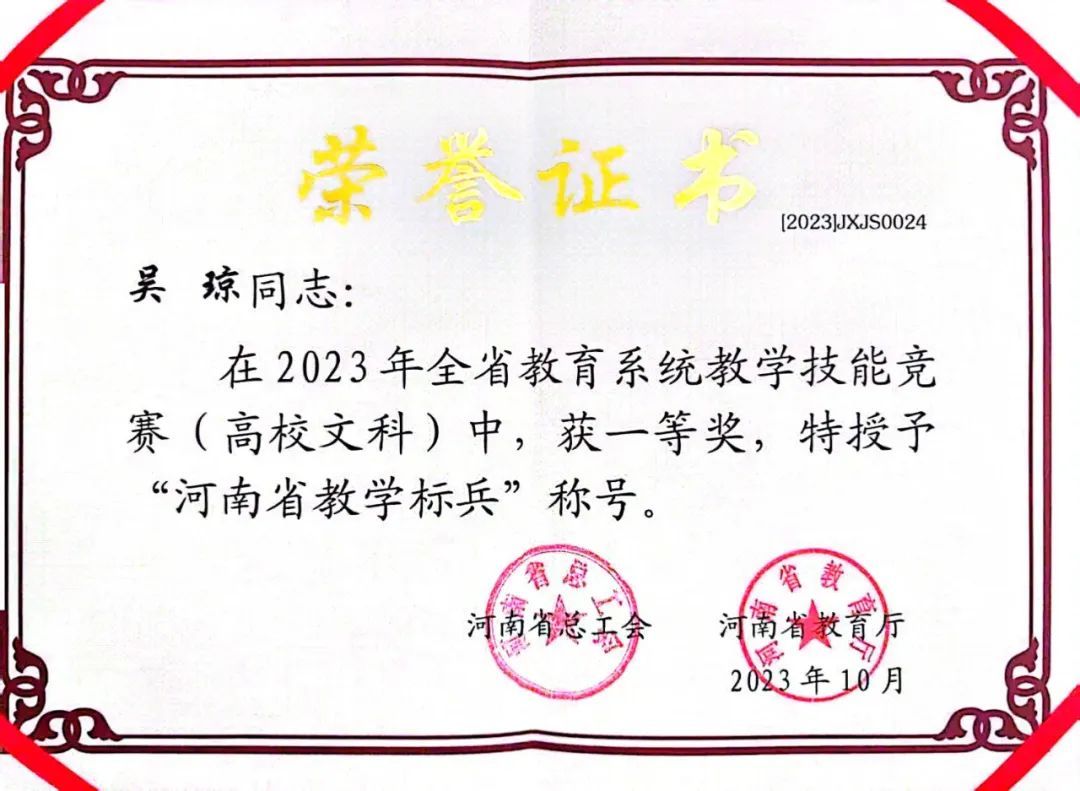 荣誉证书
[2023]JXJS0024
吴 琼同志：
在2023年全省教育系统教学技能竞
赛（高校文科）中，获一等奖，特授予
“河南省教学标兵”称号。
河南省总工会
河南省教育厅
河南省总工会 河南省教育厅
2023年10月